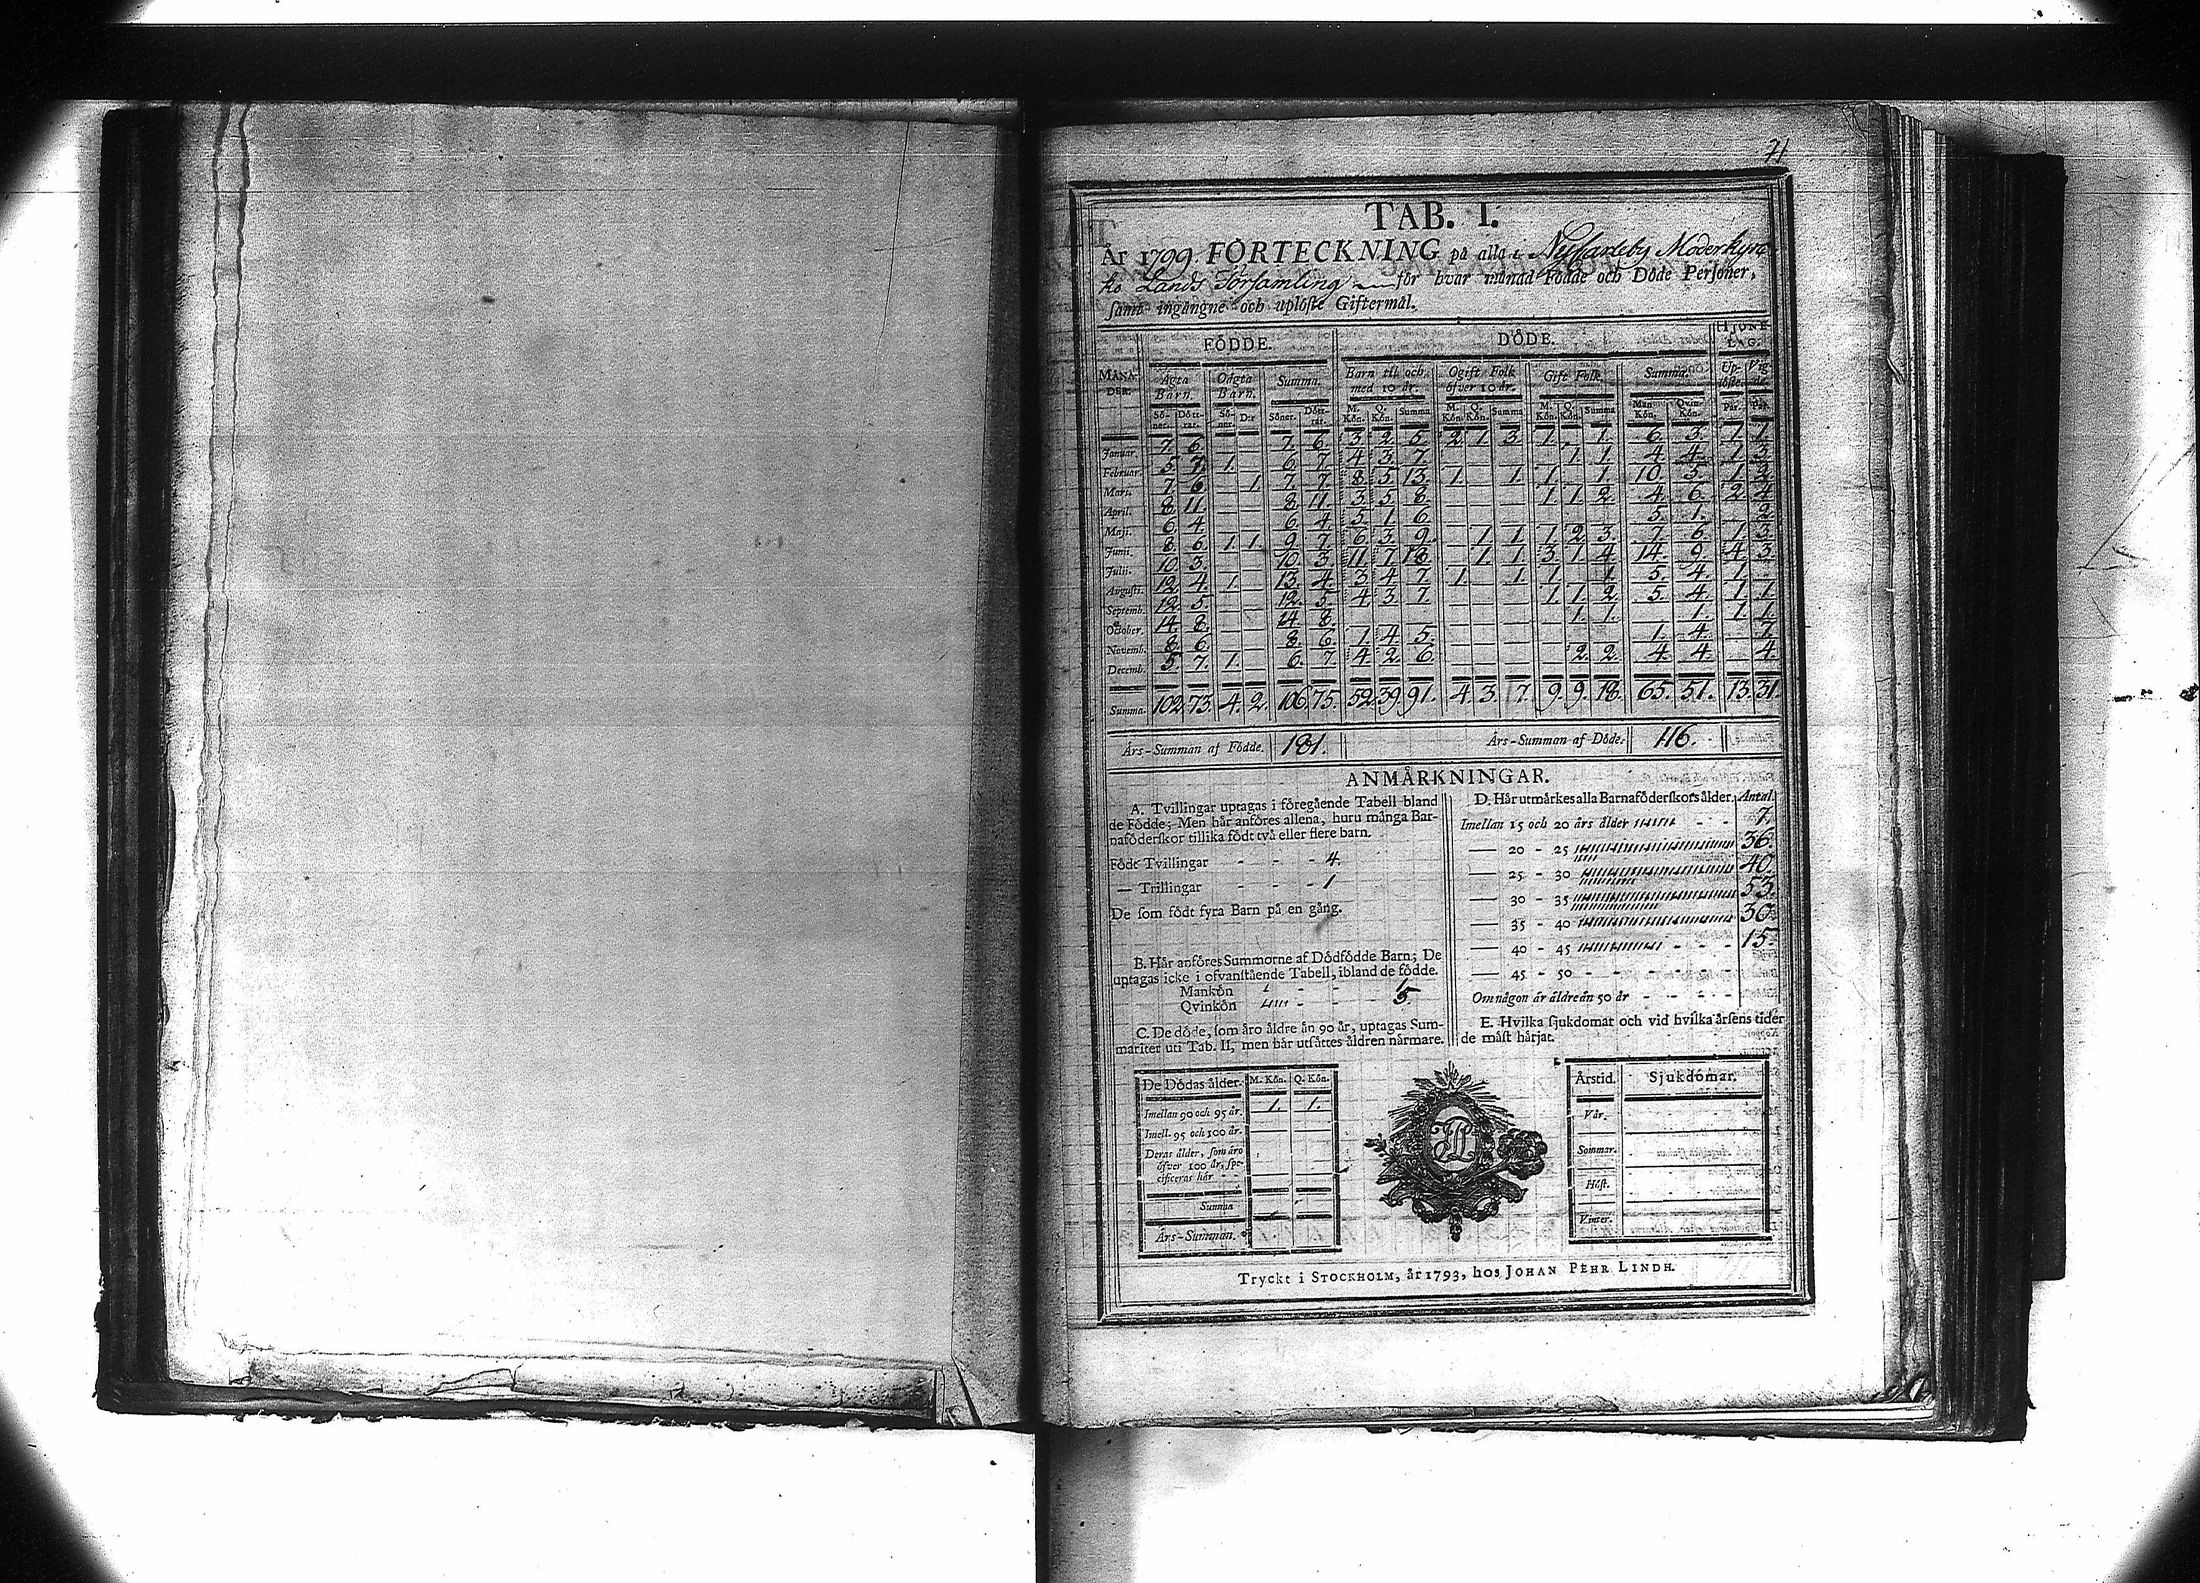 71
TAB. I.
År 1799 FÖRTECKNING på alla i Nyckarleby Moderkyrc
ko Lands Församling för hvar månad Födde och Döde Personer,
samt ingångne och uplöste Giftermål.
MÅNA-DER. FÖDDE. DÖDE. HJONE-LAG.
Ägta Barn. Oägta Barn. Summa. Barn til och med 10 år. Ogift Folk öfver 10 år. Gift Folk. Summa. Up-löste. Vig-de.
Sö-ner. Dött-rar. Sö-ner. D:r Söner. Dött-rar. M. Kön. Q. Kön. Summa M. Kön. Q. Kön. Summa M. Kön. Q. Kön. Summa Man Kön. Qvin-Kön. Par. Par.
Januar. 7. 6. — — 7. 6. 3. 2. 5. 2. 1. 3. 1. — 1. 6. 3. 1. 1.
Februar. 5. 7. 1. — 6. 7. 4. 3. 7. — — — — 1. 1. 4. 4. 1. 3.
Mart. 7. 6. — 1. 7. 7. 8. 5. 13. 1. — 1. 1. — 1. 10. 5. 1. 2.
April. 8. 11. — — 8. 11. 3. 5. 8. — — — 1. 1. 2. 4. 6. 2. 4.
Maji. 6. 4. — — 6. 4. 5. 1. 6. — — — — — — 5. 1. — 2.
Junii. 8. 6. 1. 1. 9. 7. 6. 3. 9. — 1. 1. 1. 2. 3. 7. 6. 1. 3.
Julii. 10. 3. — — 10. 3. 11. 7. 18. — 1. 1. 3. 1. 4. 14. 9. 4. 3.
Augusti. 12. 4. 1. — 13. 4. 3. 4. 7. 1. — 1. 1. — 1. 5. 4. 1. —
Septemb. 12. 5. — — 12. 5. 4. 3. 7. — — — 1. 1. 2. 5. 4. 1. 1.
October. 14. 8. — — 14. 8. — — — — — — — 1. 1. — 1. 1. 1.
Novemb. 8. 6. — — 8. 6. 1. 4. 5. — — — — — — 1. 4. — 7.
Decemb. 5. 7. 1. — 6. 7. 4. 2. 6. — — — — 2. 2. 4. 4. — 4.
Summa. 102. 73. 4. 2. 106. 75. 52. 39. 91. 4. 3. 7. 9. 9. 18. 65. 51. 13. 31.
Års-Summan af Födde. 181. Års-Summan af Döde. 116.
ANMÄRKNINGAR.
A. Tvillingar uptagas i föregående Tabell bland
de Födde; Men här anföres allena, huru många Bar-
naföderskor tillika födt två eller flere barn.
Födt Tvillingar - - - 4.
— Trillingar - - - 1
De som födt fyra Barn på en gång.
B. Här anföres Summorne af Dödfödde Barn; De
uptagas icke i ofvanstående Tabell, ibland de födde.
Mankön 1 - - 1.
Qvinkön - - 5.
C. De döde, som äro äldre än 90 år, uptagas Sum-
mariter uti Tab. II, men här utsättes åldren närmare.
D. Här utmärkes alla Barnaföderskors ålder. Antal
Imellan 15 och 20 års ålder - - 7.
— 20 - 25 36.
— 25 - 30 40.
— 30 - 35 53.
— 35 - 40 30.
— 40 - 45 - - - 15.
— 45 - 50 - - - - -
Om någon är äldre än 50 år - - - -
E. Hvilka sjukdomar och vid hvilka årsens tider
de mäst härjat.
De Dödas ålder. M. Kön. Q. Kön.
Imellan 90 och 95 år. 1. 1.
Imell. 95 och 100 år.
Deras ålder, som äro
öfver 100 år, spe-
cificeras här - -
Summa
Års-Summan.
Årstid. Sjukdomar.
Vår.
Sommar.
Höst.
Vinter.
Tryckt i STOCKHOLM, år 1793, hos JOHAN PEHR LINDH.